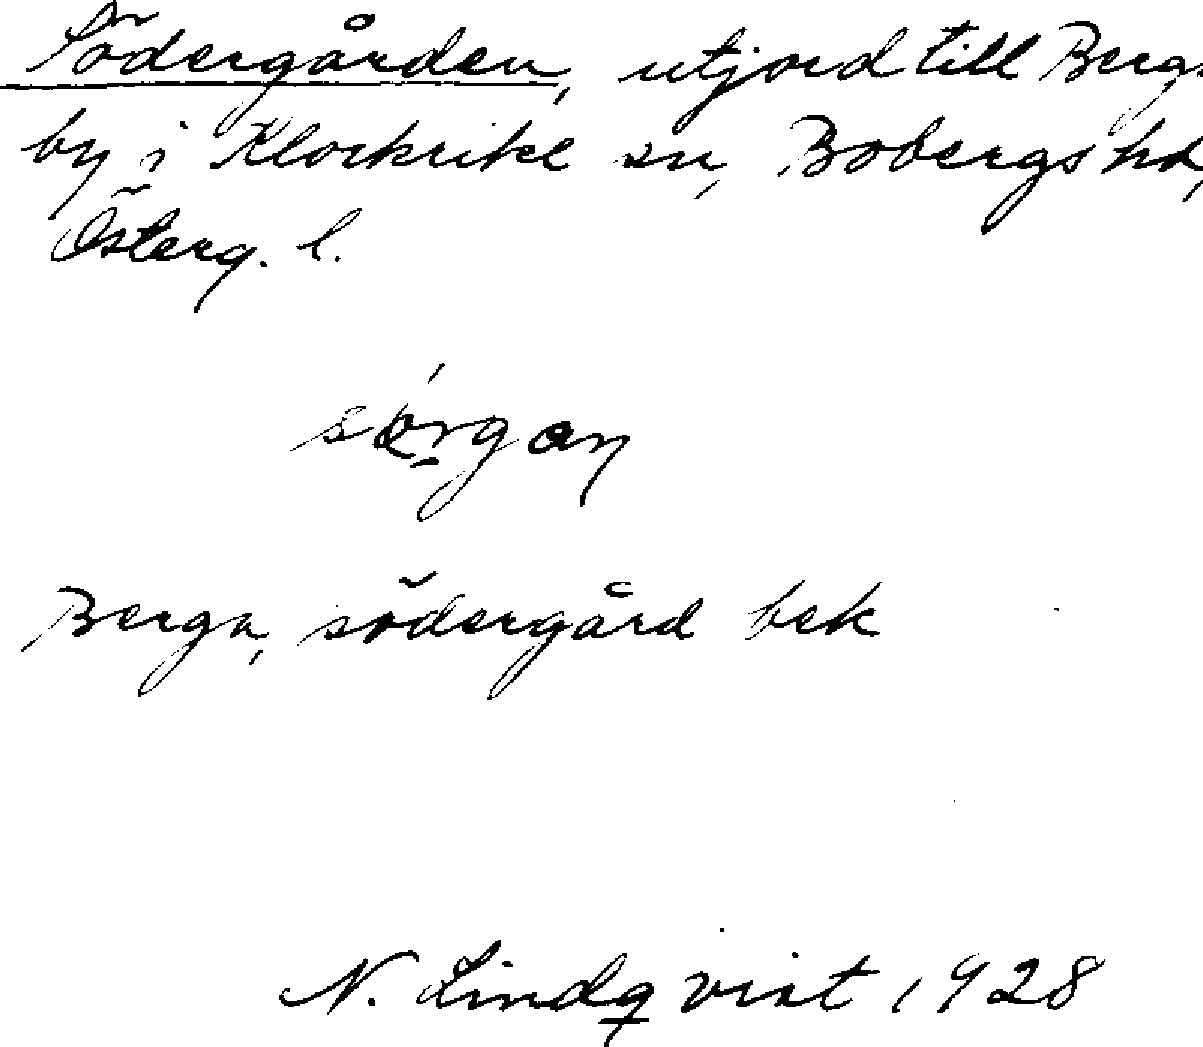 Södergården, utjord till Berga
by i Klockrike sn, Bobergs hd,
Österg. l.
Berga, södergård bek
N. Lindqvist 1928